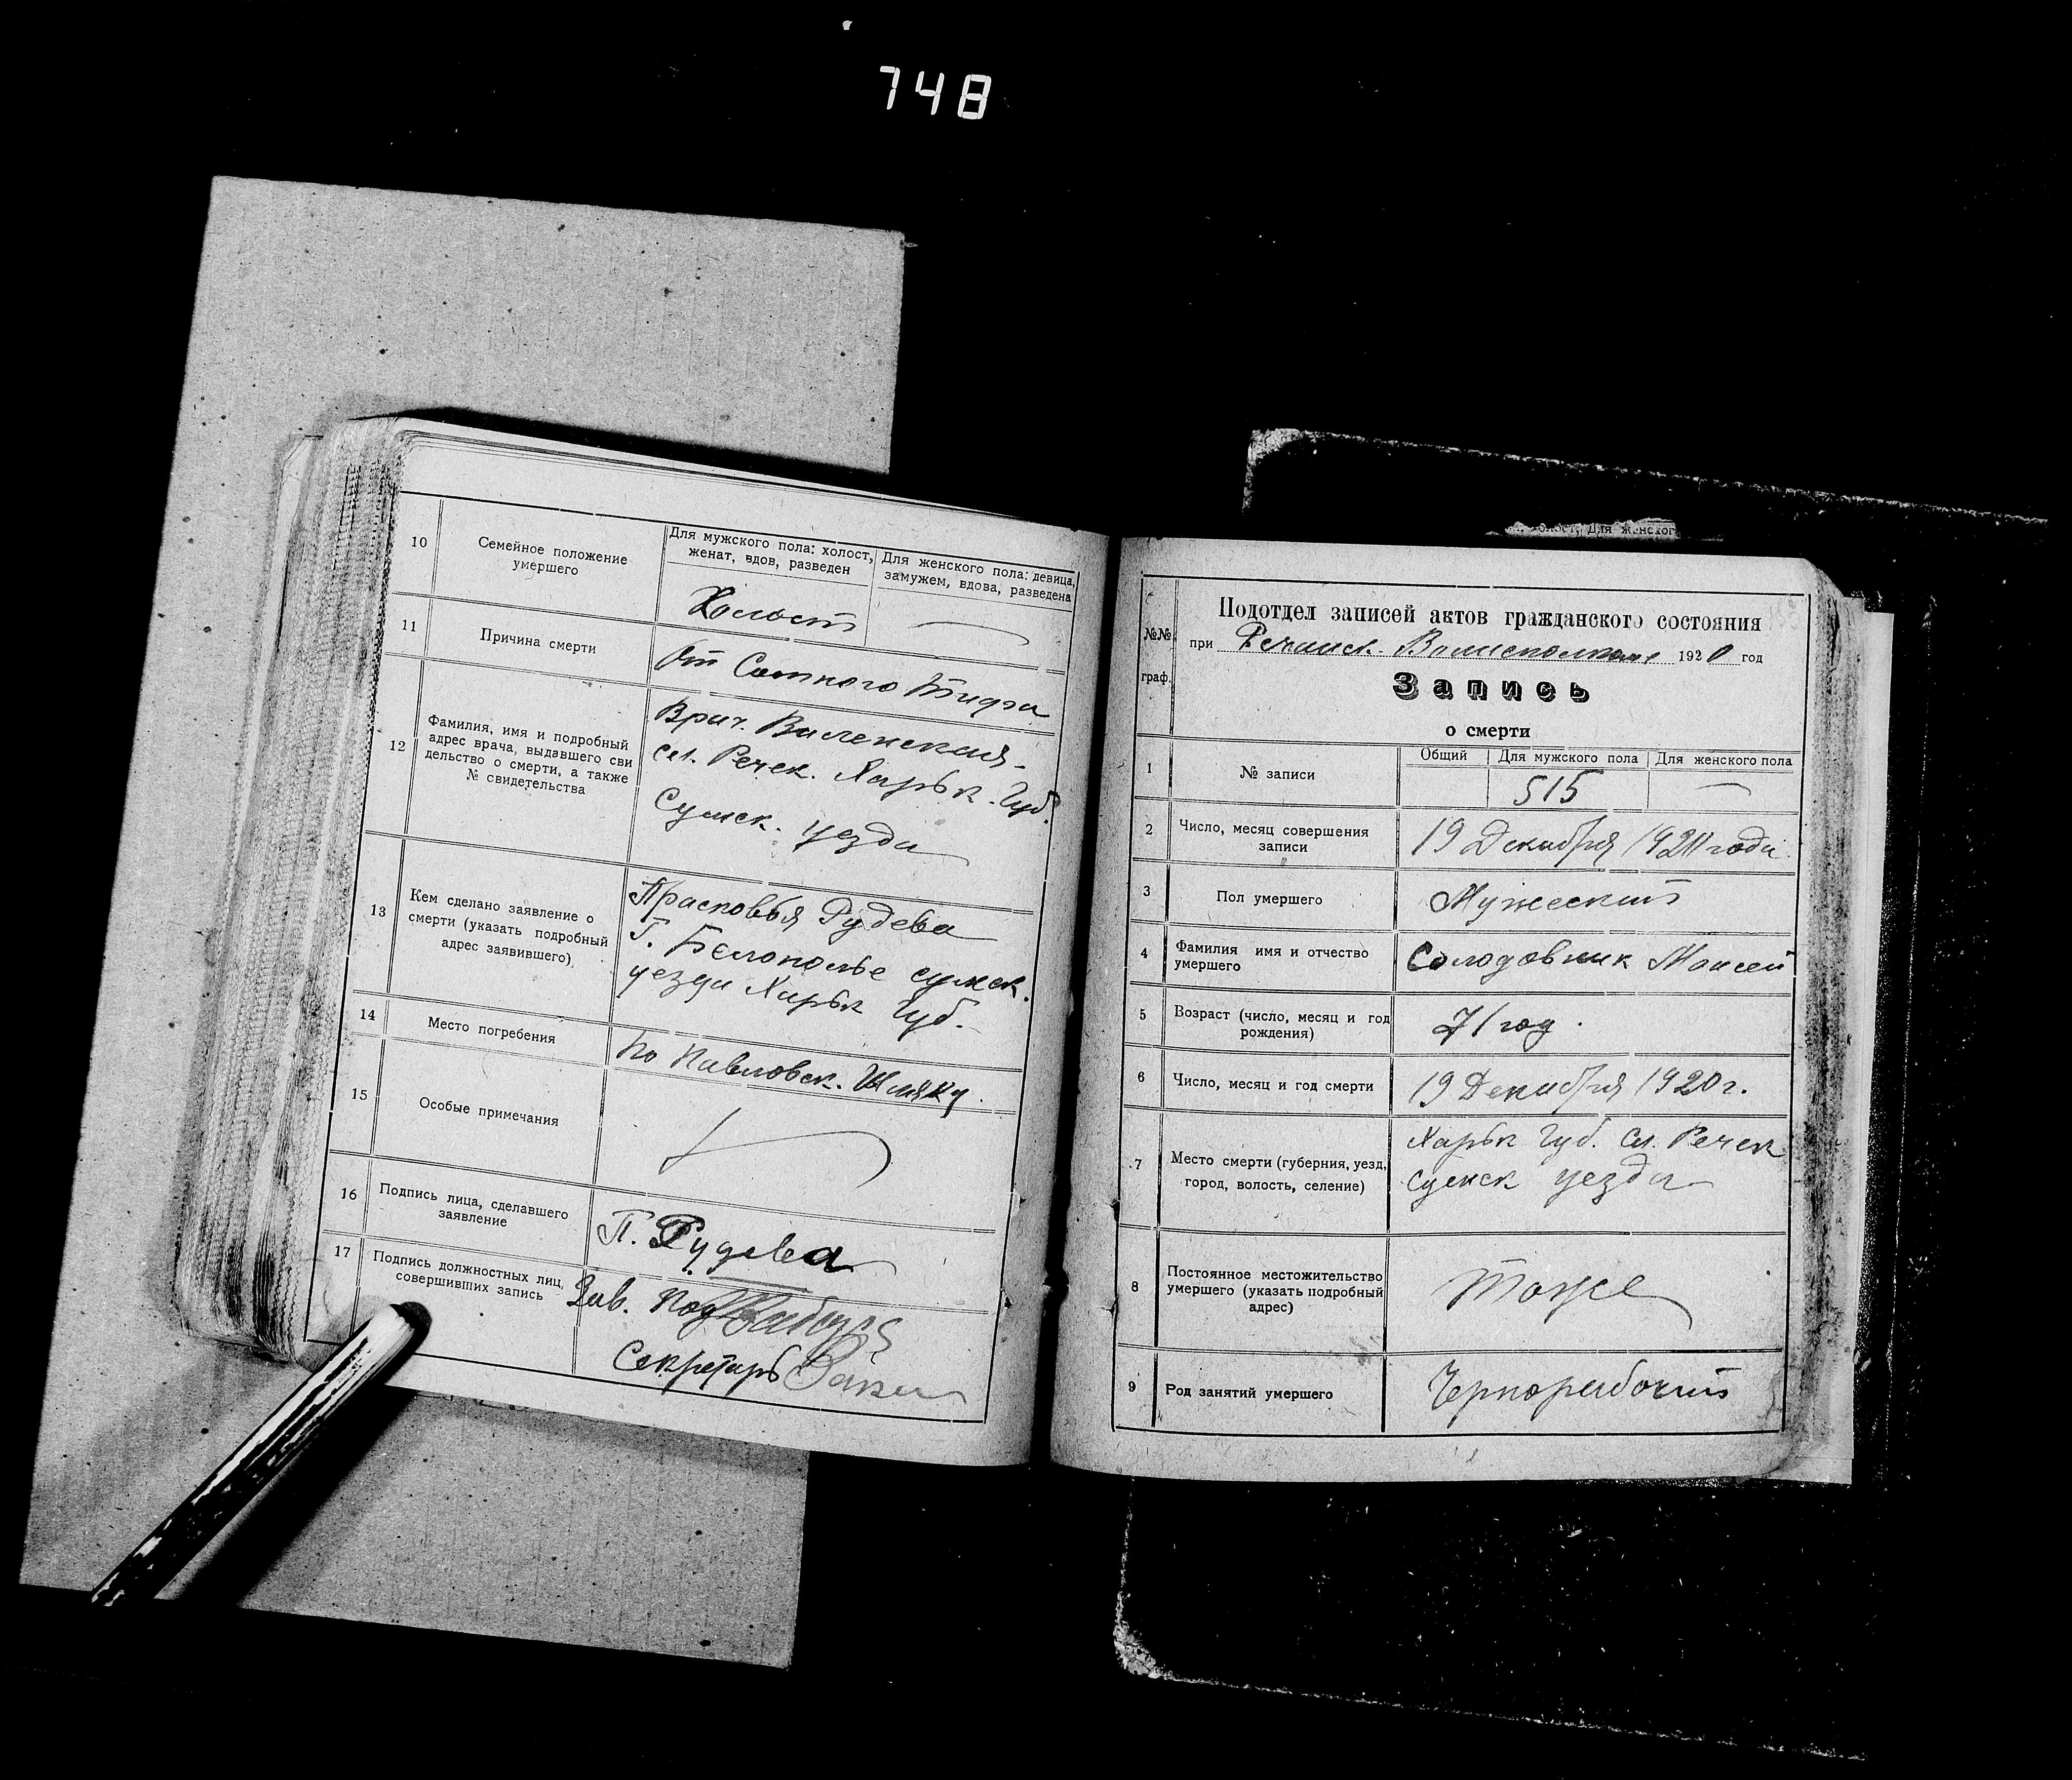 748
10
Семейное положение
умершего
Для мужского пола: холост,
женат, вдов, разведен
Для женского пола: девица,
замужем, вдова, разведена
Холост
11
Причина смерти
От Сыпного Тифа
12
Фамилия, имя и подробный
адрес врача, выдавшего сви
детельство о смерти, а также
№ свидетельства
Врач. Виленская.
сл. Речек. Харьк. Губ.
Сумск. уезда
13
Кем сделано заявление о
смерти (указать подробный
адрес заявившего)
Прасковья Рудева
Г. Белополье сумск.
уезда Харьк Губ.
14
Место погребения
По Павловск. Шляху.
15
Особые примечания
16
Подпись лица, сделавшего
заявление
П. Рудева
17
Подпись должностных лиц,
совершивших запись
Зав. Под
Секретарь
холост, Для женског
№№
граф.
Подотдел записей актов гражданского состояния
при Речанск. Волисполкоме 1920 год
Запись
о смерти
1
№ записи
Общий
Для мужского пола
Для женского пола
515
2
Число, месяц совершения
записи
19 Декабря 1920 года
3
Пол умершего
Мужеский
4
Фамилия имя и отчество
умершего
Солодовник Моисей
5
Возраст (число, месяц и год
рождения)
71 год.
6
Число, месяц и год смерти
19 Декабря 1920 г.
7
Место смерти (губерния, уезд,
город, волость, селение)
Харьк Губ. Сл. Речек
сумск уезда
8
Постоянное местожительство
умершего (указать подробный
адрес)
Тоже
9
Род занятий умершего
Чернорабочий